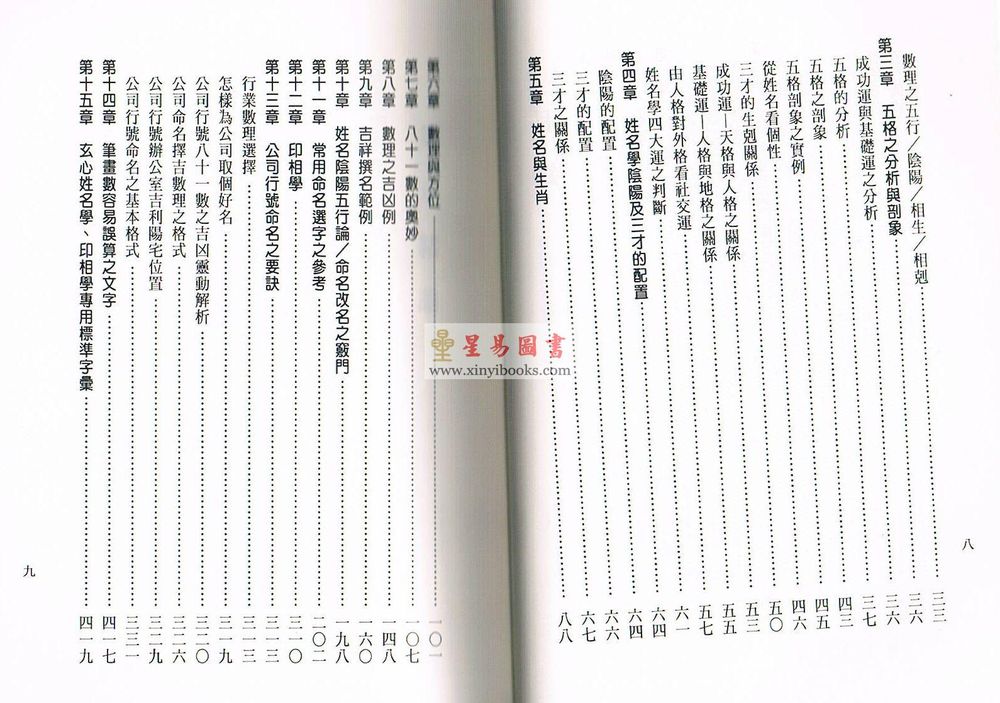 數理之五行／陰陽／相生／相剋……三三
第三章　五格之分析與剖象……三六
成功運與基礎運之分析……三六
五格的分析……三七
五格之剖象……四三
五格剖象之實例……四五
從姓名看個性……四六
三才的生剋關係……五〇
成功運—天格與人格之關係……五三
基礎運—人格與地格之關係……五五
由人格對外格看社交運……五七
姓名學四大運之判斷……六一
第四章　姓名學陰陽及三才的配置……六四
陰陽的配置……六四
三才的配置……六六
三才之關係……六七
第五章　姓名與生肖……八八
八
第六章　數理與方位……一〇一
第七章　八十一數的奧妙……一〇七
第八章　數理之吉凶例……一四八
第九章　吉祥撰名範例……一六〇
第十章　姓名陰陽五行論／命名改名之竅門……一九八
第十一章　常用命名選字之參考……二〇二
第十二章　印相學……三一〇
第十三章　公司行號命名之要訣……三一三
行業數理選擇……三一三
怎樣為公司取個好名……三一九
公司行號八十一數之吉凶靈動解析……三二〇
公司命名擇吉數理之格式……三二六
公司行號辦公室吉利陽宅位置……三二九
公司行號命名之基本格式……三三一
第十四章　筆畫數容易誤算之文字……四一七
第十五章　玄心姓名學、印相學專用標準字彙……四一九
九
星易圖書
www.xinyibooks.com